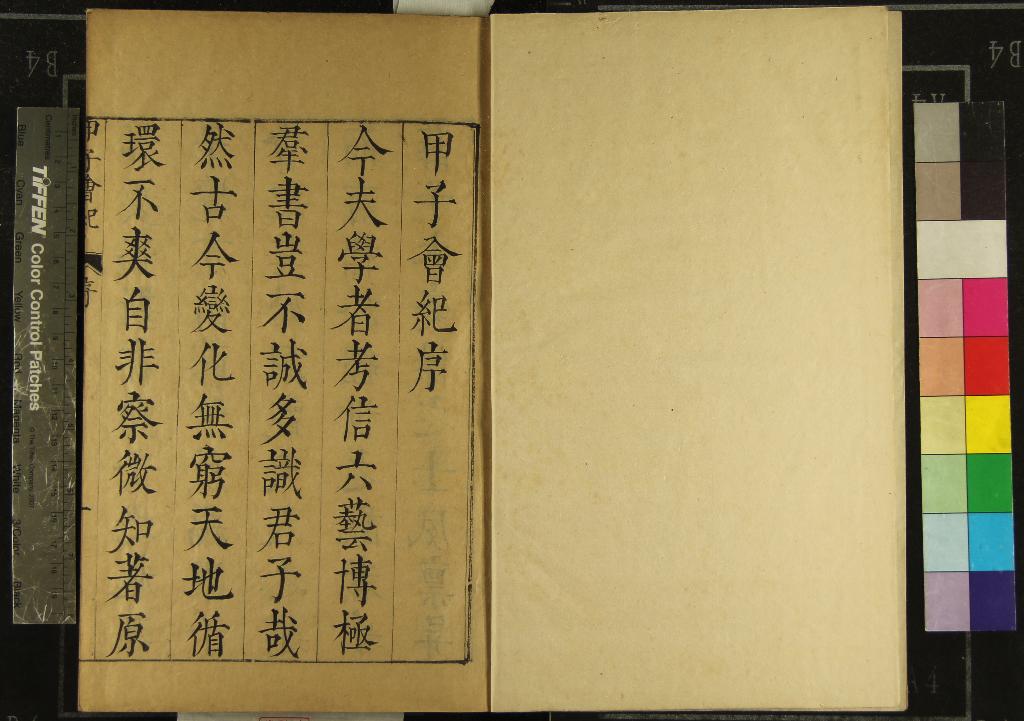 甲子會紀序
今夫學者考信六藝博極
羣書豈不誠多識君子哉
然古今變化無窮天地循
環不爽自非察微知著原
甲子會紀
序
一
TIFFEN Color Control Patches
Centimetres
Inches
Blue
Cyan
Green
Yellow
Red
Magenta
White
3/Color
Black
B4
B4
A4
A4